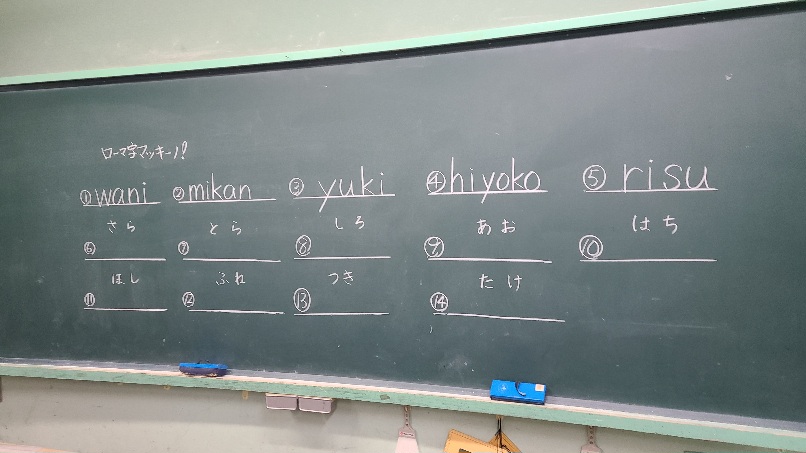 ローマ字マッキーノ!
①wani ②mikan ③yuki ④hiyoko ⑤risu
さら とら しろ あお はち
⑥ ⑦ ⑧ ⑨ ⑩
ほし ふね つき たけ
⑪ ⑫ ⑬ ⑭